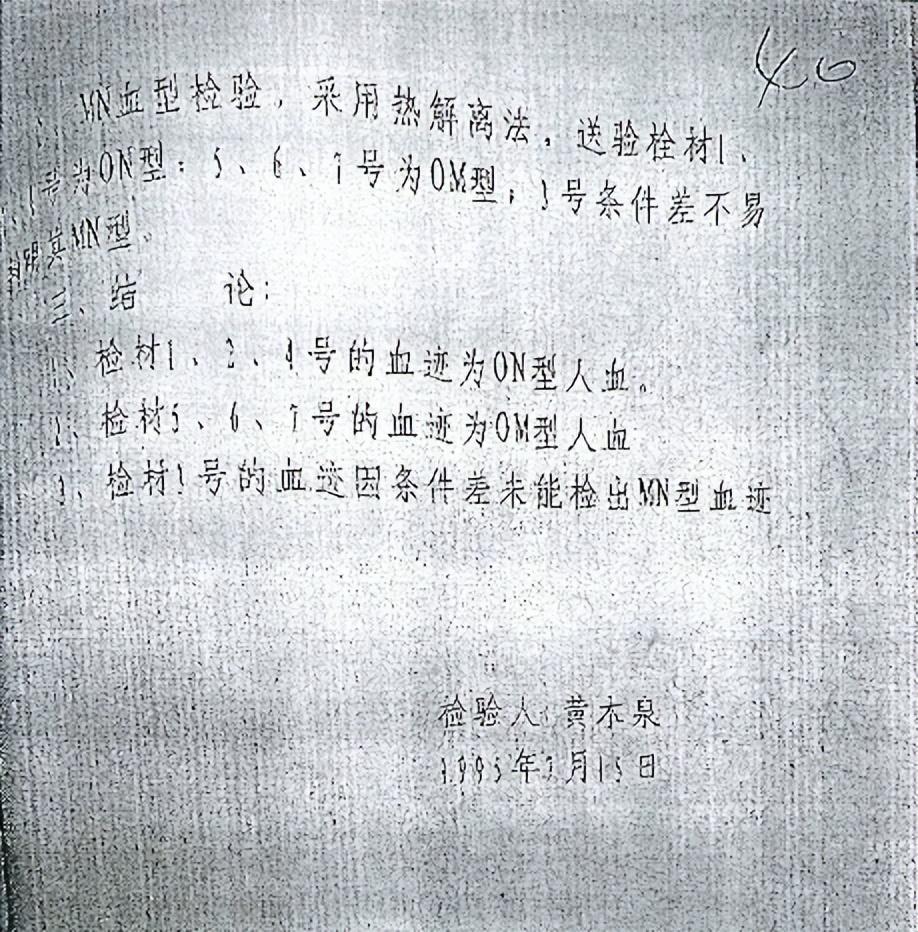 40
MN血型检验，采用热解离法，送验检材1、
号为ON型；5、6、7号为OM型；3号条件差不易
其MN型。
三、结 论：
1、检材1、2、4号的血迹为ON型人血。
2、检材5、6、7号的血迹为OM型人血
3、检材3号的血迹因条件差未能检出MN型血迹
检验人：黄木泉
1995年 月15日